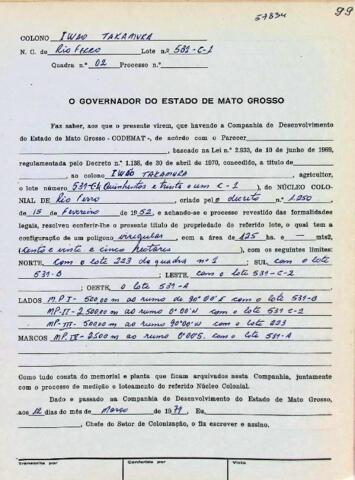 57834
99
COLONO IWAO TAKAMURA
N. C. de Rio Ferro Lote n.º 531-C-1
Quadra n.º 02 Processo n.º
O GOVERNADOR DO ESTADO DE MATO GROSSO
Faz saber, aos que o presente virem, que havendo a Companhia de Desenvolvimento
do Estado de Mato Grosso - CODEMAT -, de acôrdo com o Parecer
baseado na Lei n.º 2.933, de 10 de junho de 1969,
regulamentada pelo Decreto n.º 1.138, de 30 de abril de 1970, concedido, a título de
ao colono IWAO TAKAMURA, agricultor,
o lote número 531-C-1 (Quinhentos e trinta e um C-1), do NÚCLEO COLO-
NIAL DE Rio Ferro, criado pelo decreto n.º 1.250
de 15 de Fevereiro de 1952, e achando-se o processo revestido das formalidades
legais, resolveu conferir-lhe o presente título de propriedade do referido lote, o qual tem a
configuração de um polígono irregular, com a área de 125 ha. — mts2,
(cento e vinte e cinco hectares), com os seguintes limites:
NORTE, com o lote 223 da quadra n.º 1; SUL, com o lote
531-B; LESTE, com o lote 531-C-2
; OESTE, o lote 531-A
LADOS M.P.I- 500,00 m ao rumo de 90º00'S com o lote 531-B
MP-II- 2500,00 m ao rumo 0º00'N com o lote 531-C-2
MP-III- 500,00 m ao rumo 90º00'W com o lote 223
MARCOS MP-IIII- 2500 m ao rumo 0º00S. com o lote 531-A
Como tudo consta do memorial e planta que ficam arquivados nesta Companhia, juntamente
com o processo de medição e loteamento do referido Núcleo Colonial.
Dado e passado na Companhia de Desenvolvimento do Estado de Mato Grosso,
aos 12 dias do mês de Março de 1979. Eu,
, Chefe do Setor de Colonização, o fiz escrever e assino.
Transcrito por Conferido por Visto